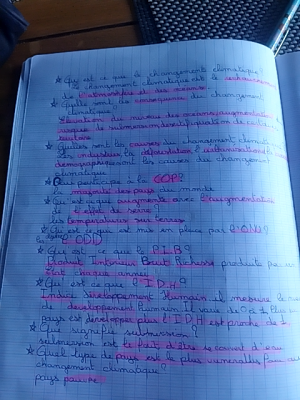 Qu'est ce que le changement climatique?
Le changement climatique est le
de l'atmosphère et des océans.
Quelle sont les conséquences du changement
climatique?
Élévation du niveau des océans, augmentation
risque de submersion,
Quelles sont les causes du changement
Les industries, la
démographique sont les causes du changement
climatique
Qui participe à la COP?
La majorité des pays du monde
Qu'est ce qui augmente avec l'augmentation
de l'effet de serre?
Les températures
Qu'est ce qui est mis en place par l'ONU?
ODD
Qu'est ce que le P.I.B?
Produit Intérieur Brut Richesse produite par
État chaque année
Qu'est ce que l'I.D.H?
Indice Développement Humain il mesure le
de développement humain il varie de 0 à 1. Plus un
pays est développé plus l'I.D.H est proche de 1.
Que signifie submersion?
submersion est le fait d'être couvert d'eau
Quel type de pays est le plus vulnérables face au
changement climatique?
pays pauvre